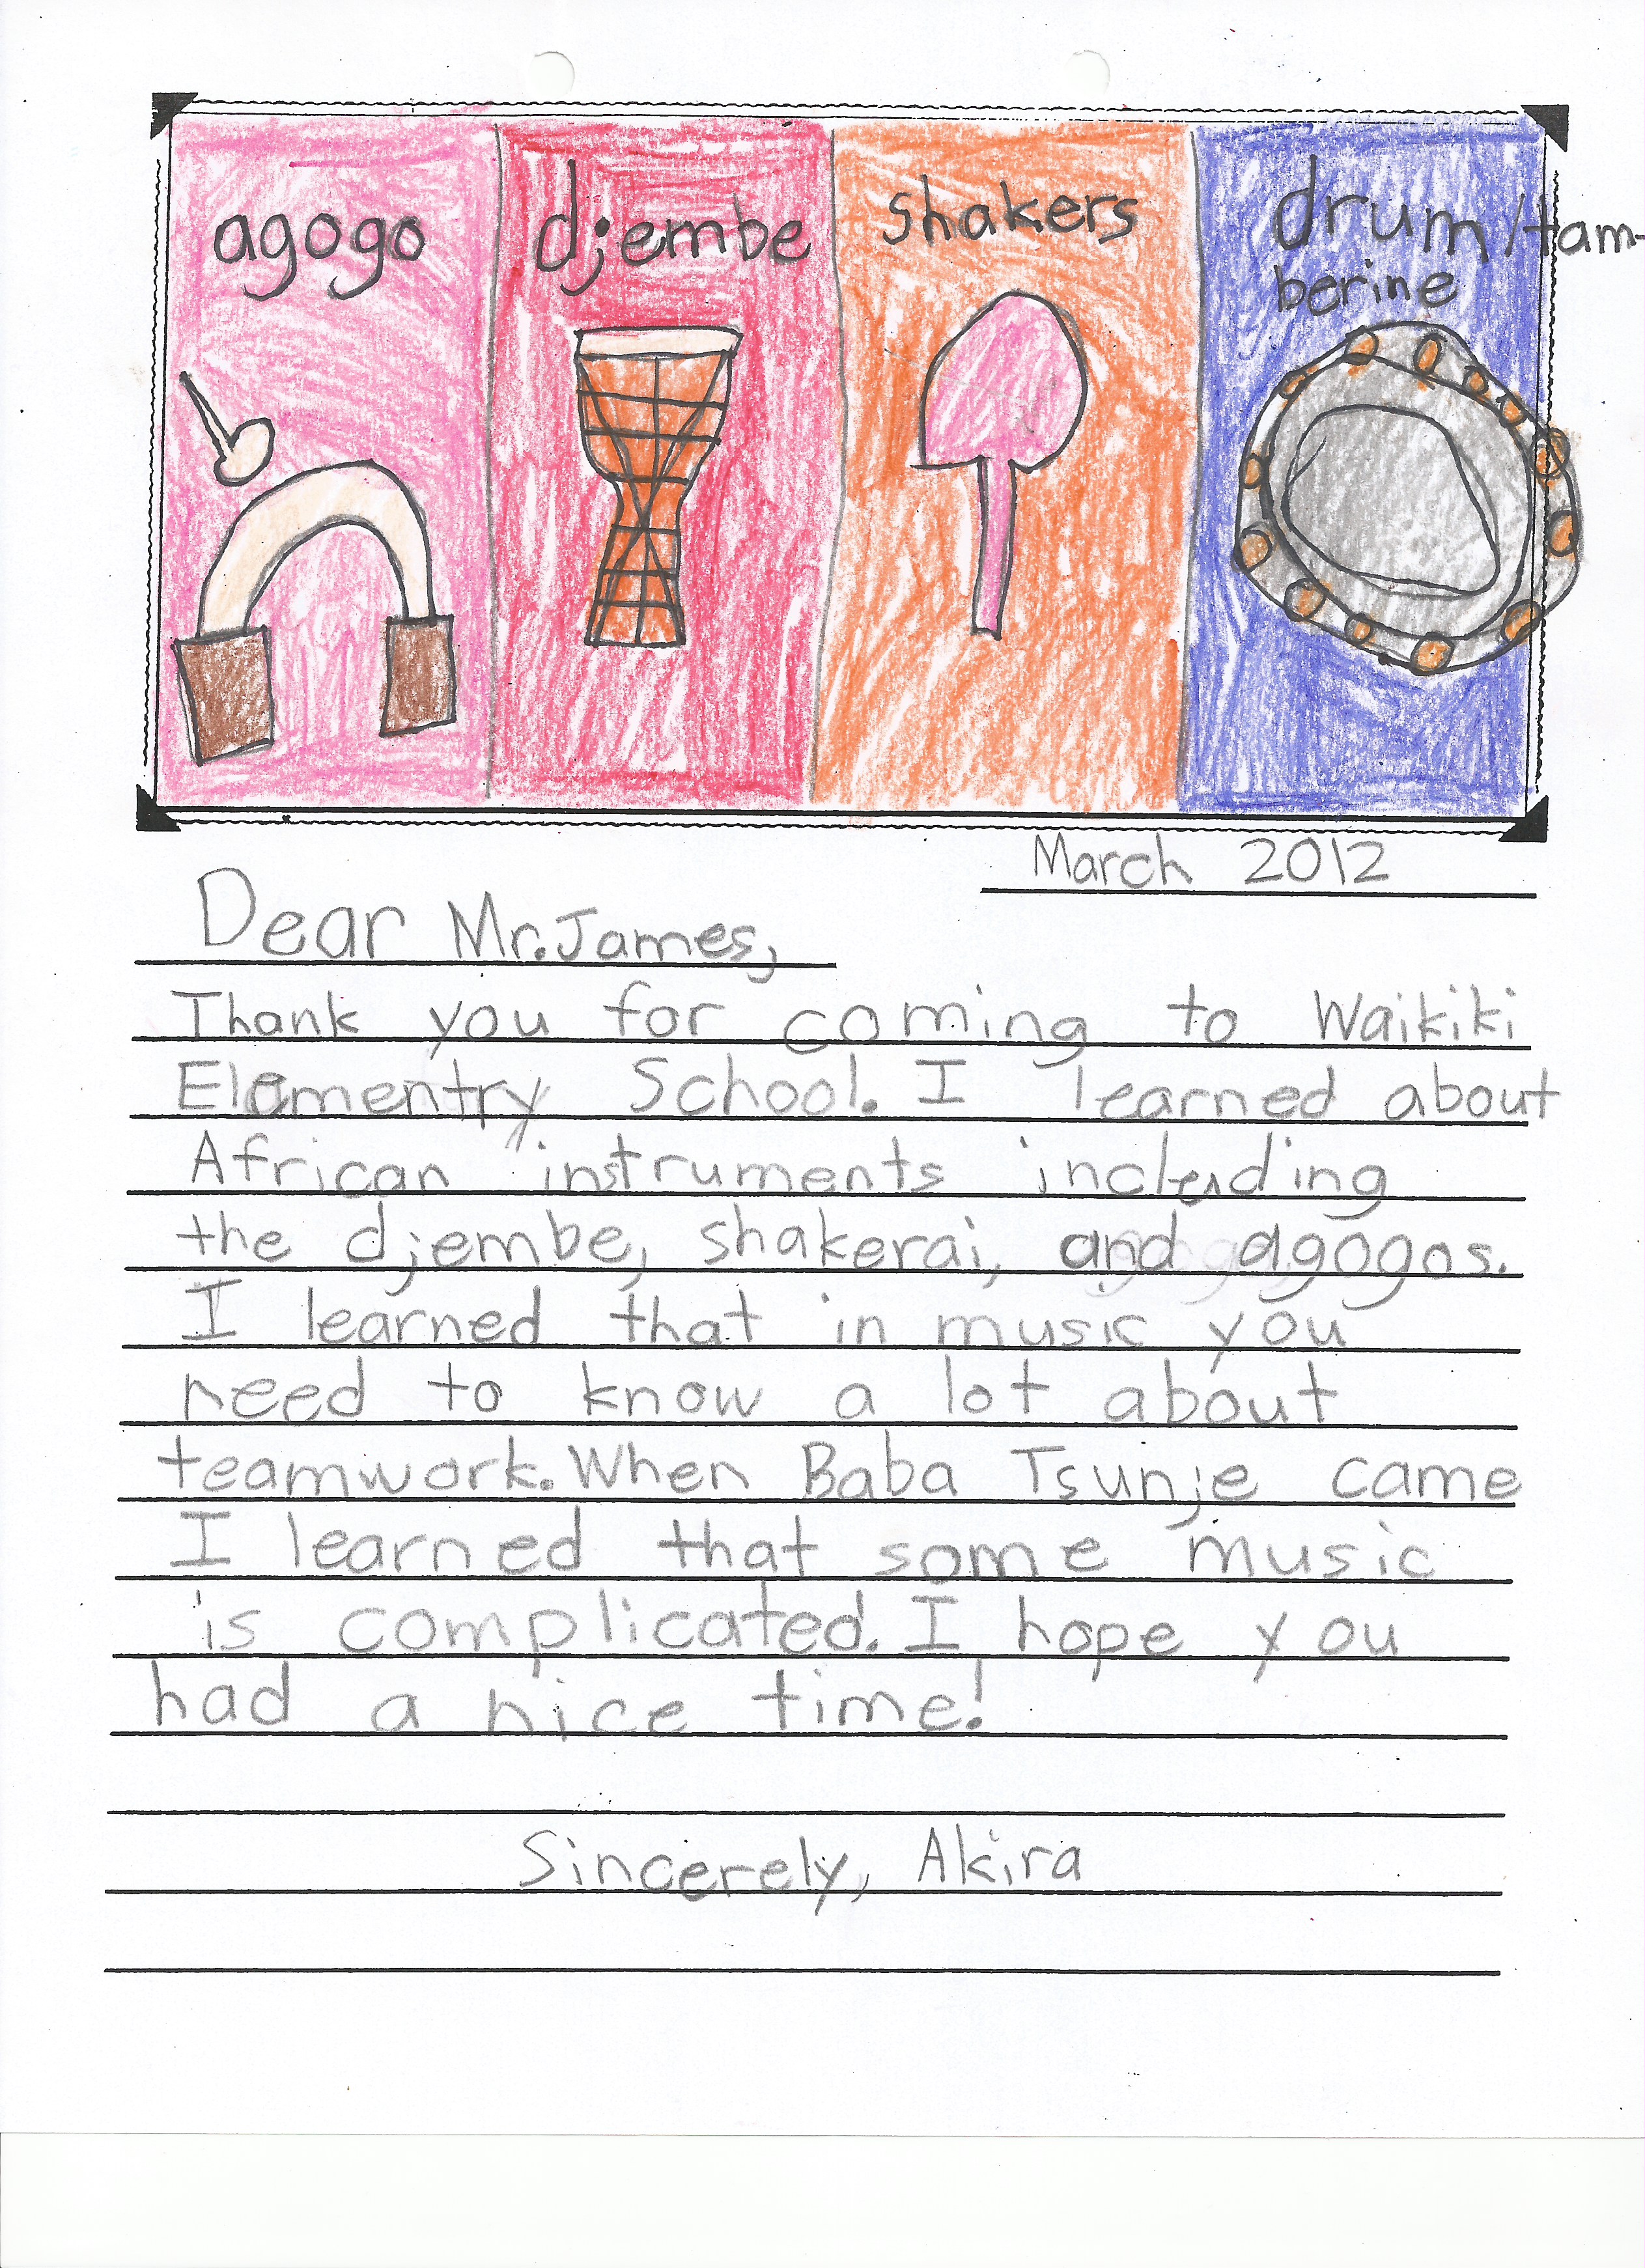 agogo
djembe
shakers
drum/tam-
berine
March 2012
Dear Mr. James,
Thank you for coming to Waikiki
Elementry School. I learned about
African instruments including
the djembe, shakerai, and agogos.
I learned that in music you
need to know a lot about
teamwork. When Baba Tsunje came
I learned that some music
is complicated. I hope you
had a nice time!
Sincerely, Akira